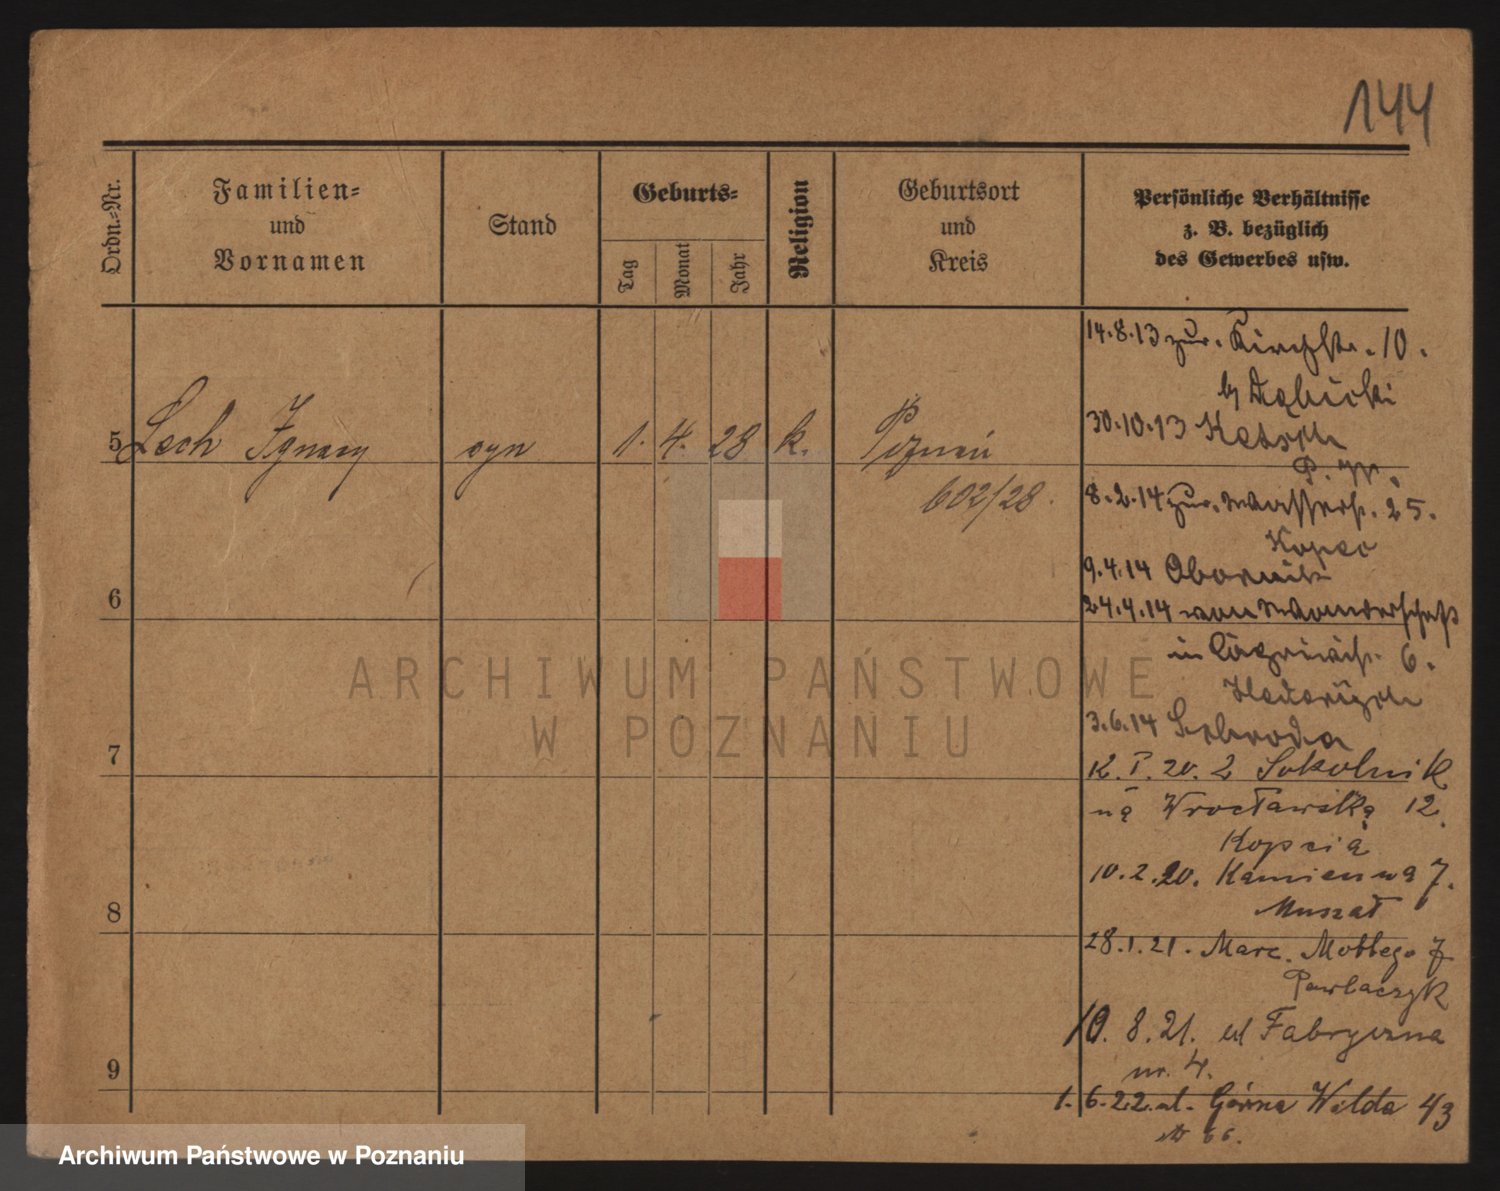 144
Ordn.=Nr.
Familien=
und
Vornamen
Stand
Geburts=
Tag
Monat
Jahr
Religion
Geburtsort
und
Kreis
Persönliche Verhältnisse
z. B. bezüglich
des Gewerbes usw.
5 Lech Ignacy syn 1. 4. 28 k. Poznań
602/28.
6
7
8
9
14.8.13 zur. Kirchstr. 10.
b/ Dąbicki
30.10.13
8.2.14 zur. Wasserstr. 25.
Kopec
9.4.14 Obornik
24.4.14 von Wanderschaft
in 6.
3.6.14 Schroda
12. I. 20. Z Sokolnik
na Wrocławską 12.
Kopcia
10.2.20. Kamienna 7.
Muszał
28.1.21. Marc. Mottego 7
Pawlaczyk
10. 8. 21. ul Fabryczna
nr. 4.
1. 6. 22. ul. Górna Wilda 43
ARCHIWUM PAŃSTWOWE
W POZNANIU
Archiwum Państwowe w Poznaniu